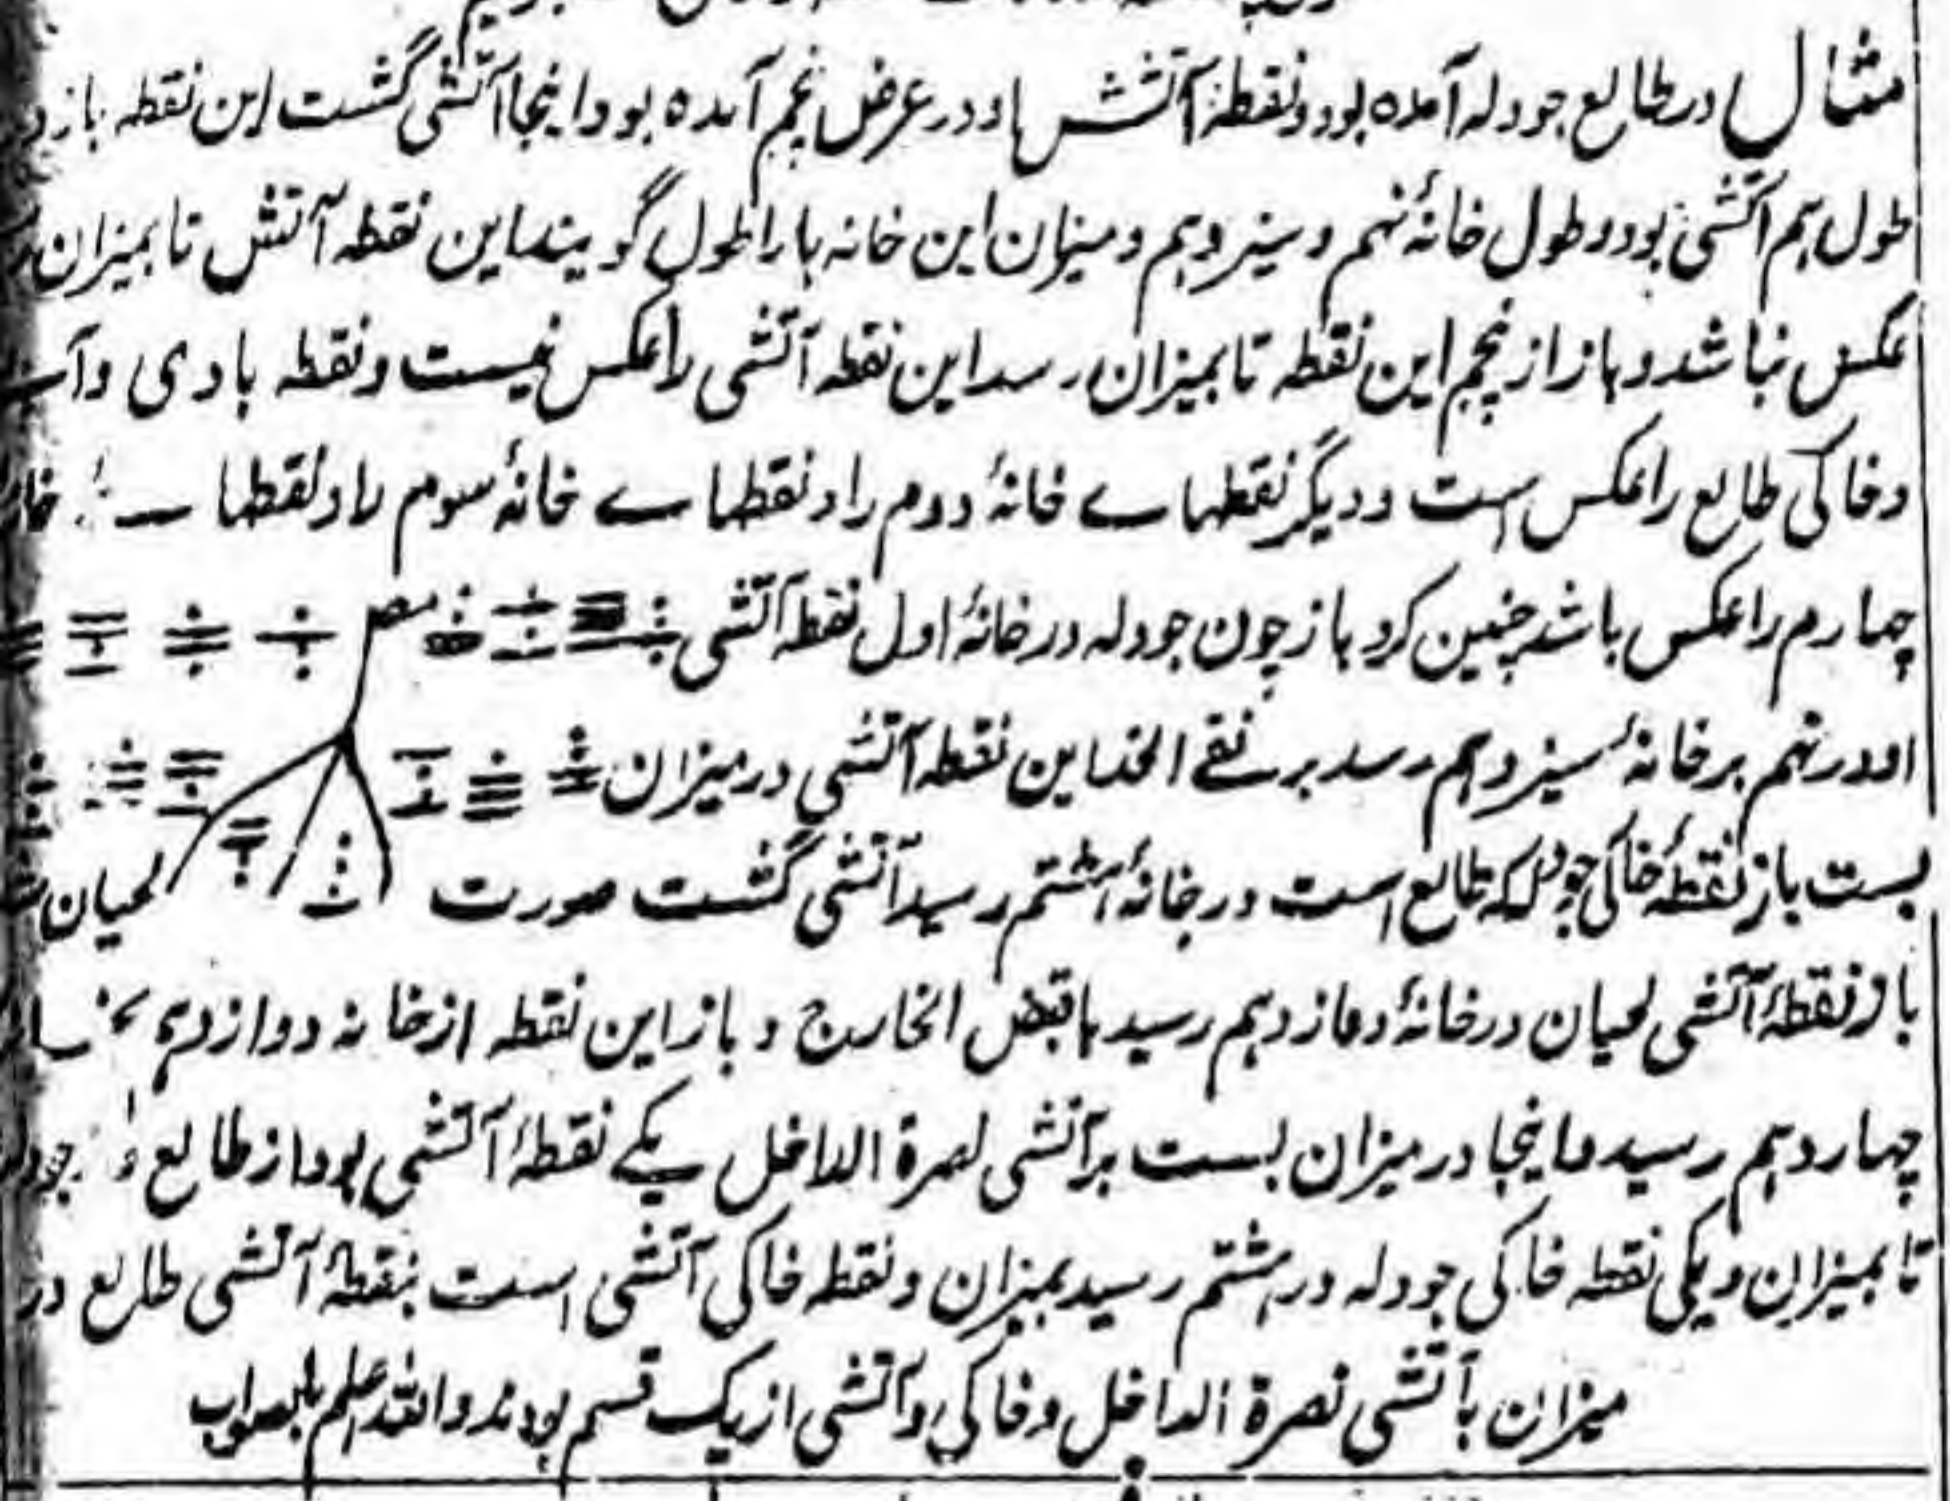 مثال در طالع جودله آمده بود و نقطهٔ آتشش او در عرض پنجم آمده بود اینجا آتشی گشت این نقطه باز
طول هم آتشی بود و طول خانهٔ نهم و سیزدهم و میزان این خانه ها را طول گویند این نقطه آتش تا بمیزان
عکس نباشد و باز از پنجم این نقطه تا بمیزان رسد این نقطه آتشی را عکس نیست و نقطه بادی و آبی
و خاکی طالع را عکس است و دیگر نقطهاے خانهٔ دوم را و نقطهاے خانهٔ سوم را و نقطهاے
چهارم را عکس باشد چنین کرد باز چون جودله در خانهٔ اول نقطه آتشی
او در نهم بر خانهٔ سیزدهم رسد بر نقے الخد این نقطه آتشی در میزان
بست باز نقطهٔ خاکی جودله که طالع است در خانهٔ هشتم رسید آتشی گشت صورت لحیان
باز نقطهٔ آتشی لحیان در خانهٔ دوازدهم رسید با قبض الخارج و باز این نقطه از خانه دوازدهم
چهاردهم رسید و اینجا در میزان بست بر آتشی نصرة الداخل یکے نقطهٔ آتشی بود از طالع جودله
تا بمیزان و یکی نقطه خاکی جودله در هشتم رسید بمیزان و نقطه خاکی آتشی است بنقطهٔ آتشی طالع در
میزان بآتشی نصرة الداخل و خاکی و آتشی از یک قسم بودند والله اعلم بالصواب